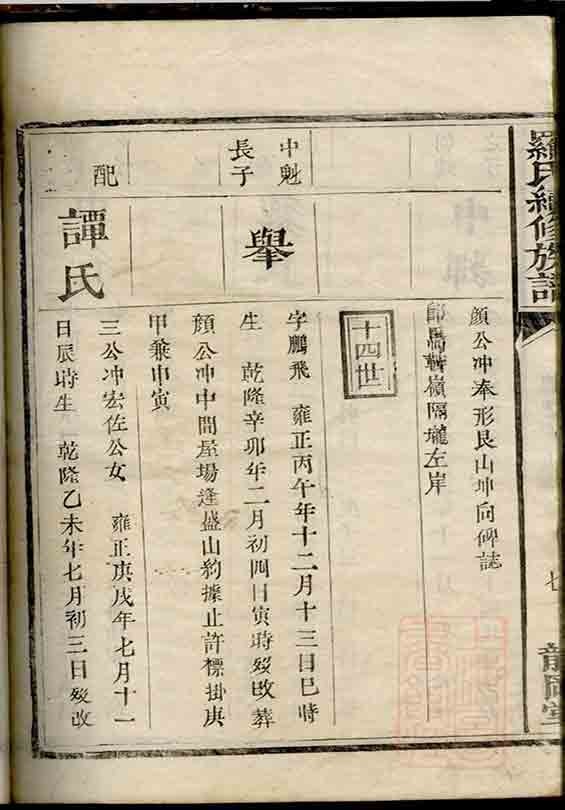 羅氏續修族譜
七
顔公冲奉形艮山坤向碑誌
嶺隔壠左岸
十四世
中魁
長子
舉
字鵬飛 雍正丙午年十二月十三日巳時
生 乾隆辛卯年二月初四日寅時歿改葬
顔公冲中間屋場逢盛山豹據止許標掛庚
甲兼申寅
配
譚氏
三公冲宏佐公女 雍正庚戌年七月十一
日辰時生 乾隆乙未年七月初三日歿改